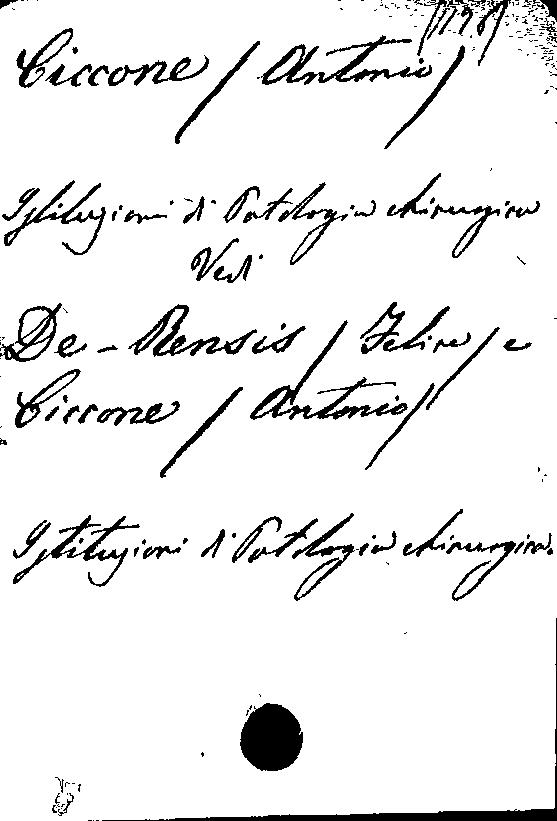 Ciccone / Antonio /
Istituzioni di Patologia chirurgica
Vedi
De-Rensis / Felice / e
Ciccone / Antonio /
Istituzioni di Patologia chirurgica.